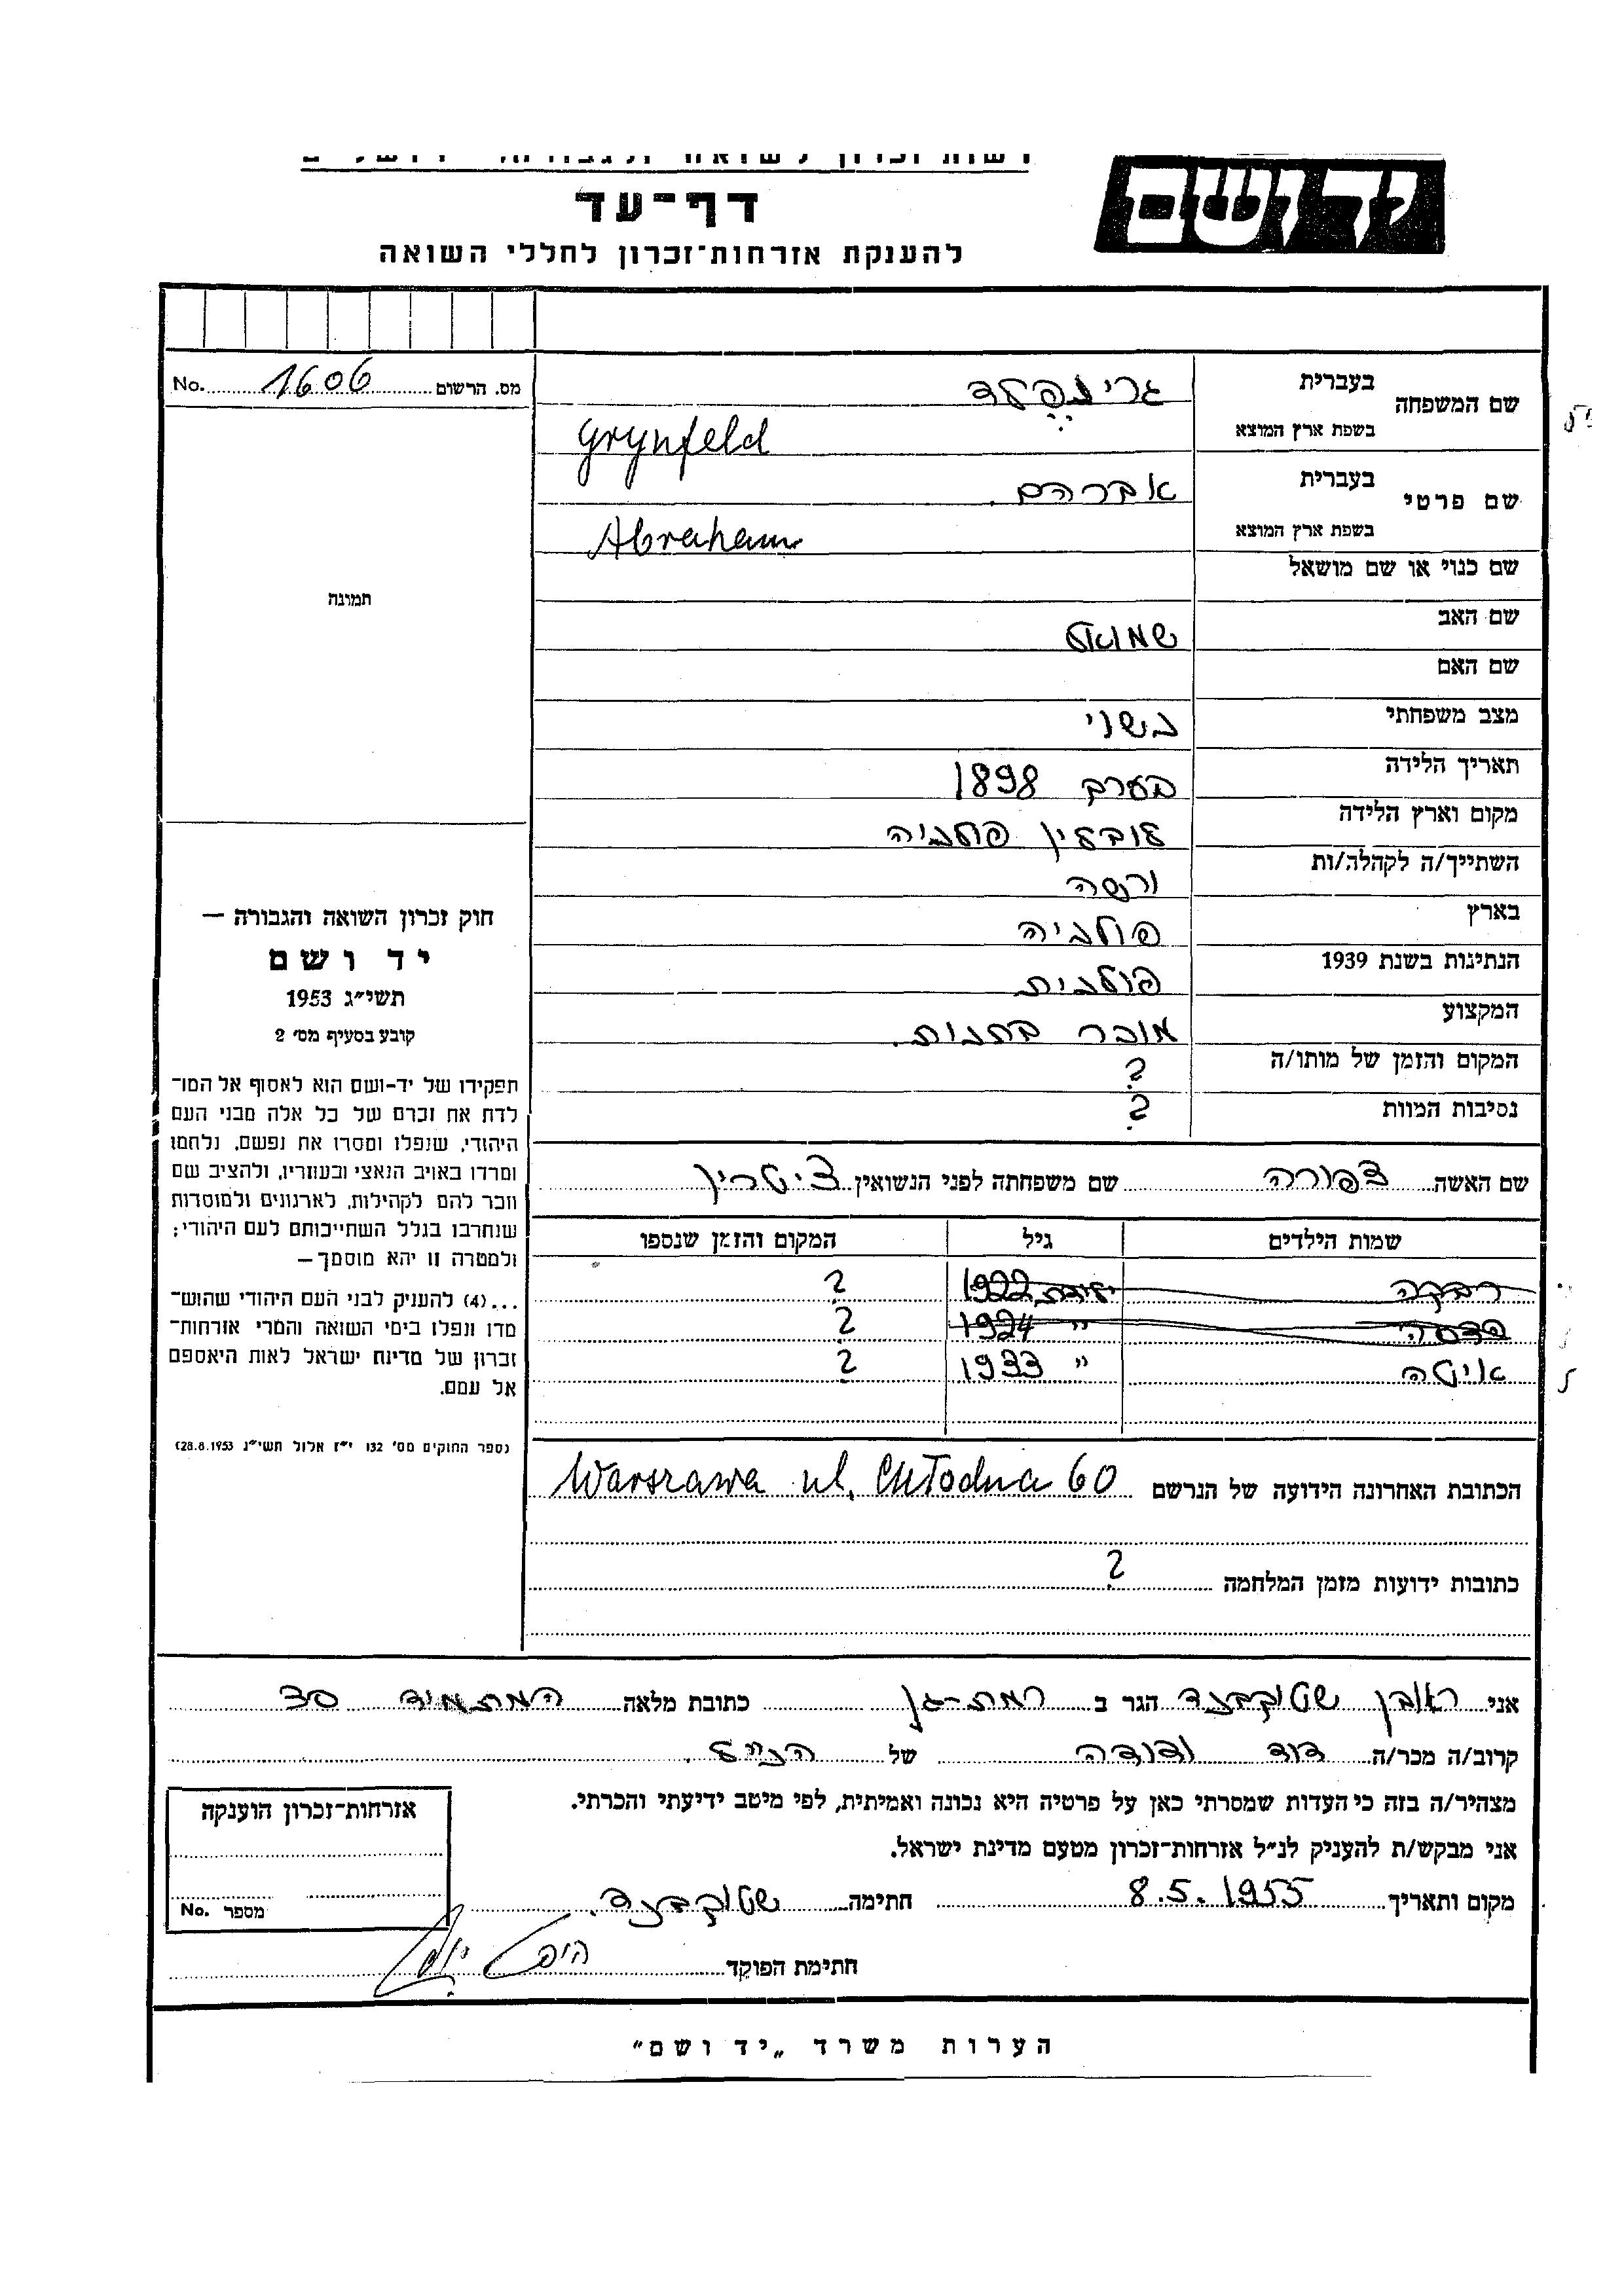 יד ושם
דף־עד
להענקת אזרחות־זכרון לחללי השואה
מס. הרשום 1606 No.
שם המשפחה
בעברית
גרינפלד
בשפת ארץ המוצא
Grynfeld
שם פרטי
בעברית
אברהם.
בשפת ארץ המוצא
Abraham
שם כנוי או שם מושאל
שם האב שמואל
שם האם
מצב משפחתי נשוי
תאריך הלידה בערך 1898
מקום וארץ הלידה לובלין פולניה
השתייך/ה לקהלה/ות ורשה
בארץ פולניה
הנתינות בשנת 1939 פולנית
המקצוע מוכר בחנות.
המקום והזמן של מותו/ה ?
נסיבות המוות ?
תמונה
חוק זכרון השואה והגבורה —
יד ושם
תשי״ג 1953
קובע בסעיף מס׳ 2
תפקידו של יד-ושם הוא לאסוף אל המו־
לדת את זכרם של כל אלה מבני העם
היהודי, שנפלו ומסרו את נפשם, נלחמו
ומרדו באויב הנאצי ובעוזריו, ולהציב שם
וזכר להם לקהילות, לארגונים ולמוסדות
שנחרבו בגלל השתייכותם לעם היהודי;
ולמטרה זו יהא מוסמך—
...(4) להעניק לבני העם היהודי שהוש־
מדו ונפלו בימי השואה והמרי אזרחות־
זכרון של מדינת ישראל לאות היאספם
אל עמם.
(ספר החוקים מס׳ 132 י״ז אלול תשי״ג 28.8.1953)
שם האשה צפורה שם משפחתה לפני הנשואין ציטרין
שמות הילדים גיל המקום והזמן שנספו
רבקה ילידת 1922 ?
הדסה " 1924 ?
איטה " 1933 ?
הכתובת האחרונה הידועה של הנרשם Warszawa ul. Chłodna 60
כתובות ידועות מזמן המלחמה ?
אני ראובן שטוקבנד הגר ב רמת-גן כתובת מלאה המתמיד 30
קרוב/ה מכר/ה דוד ודודה של הנ״ל.
מצהיר/ה בזה כי העדות שמסרתי כאן על פרטיה היא נכונה ואמיתית, לפי מיטב ידיעתי והכרתי.
אני מבקש/ת להעניק לנ״ל אזרחות־זכרון מטעם מדינת ישראל.
מקום ותאריך 8.5.1955 חתימה שטוקבנד.
אזרחות־זכרון הוענקה
מספר No.
חתימת הפוקד
הערות משרד „יד ושם״